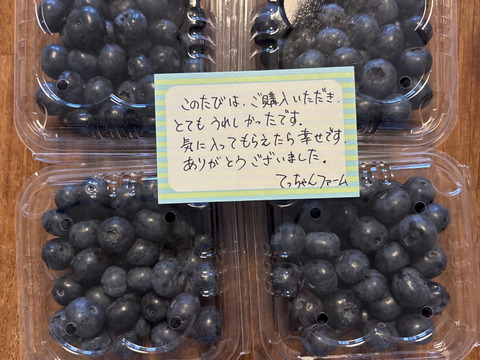 このたびは、ご購入いただき、
とても うれしかったです。
気に入ってもらえたら幸せです。
ありがとうございました。
てっちゃんファーム